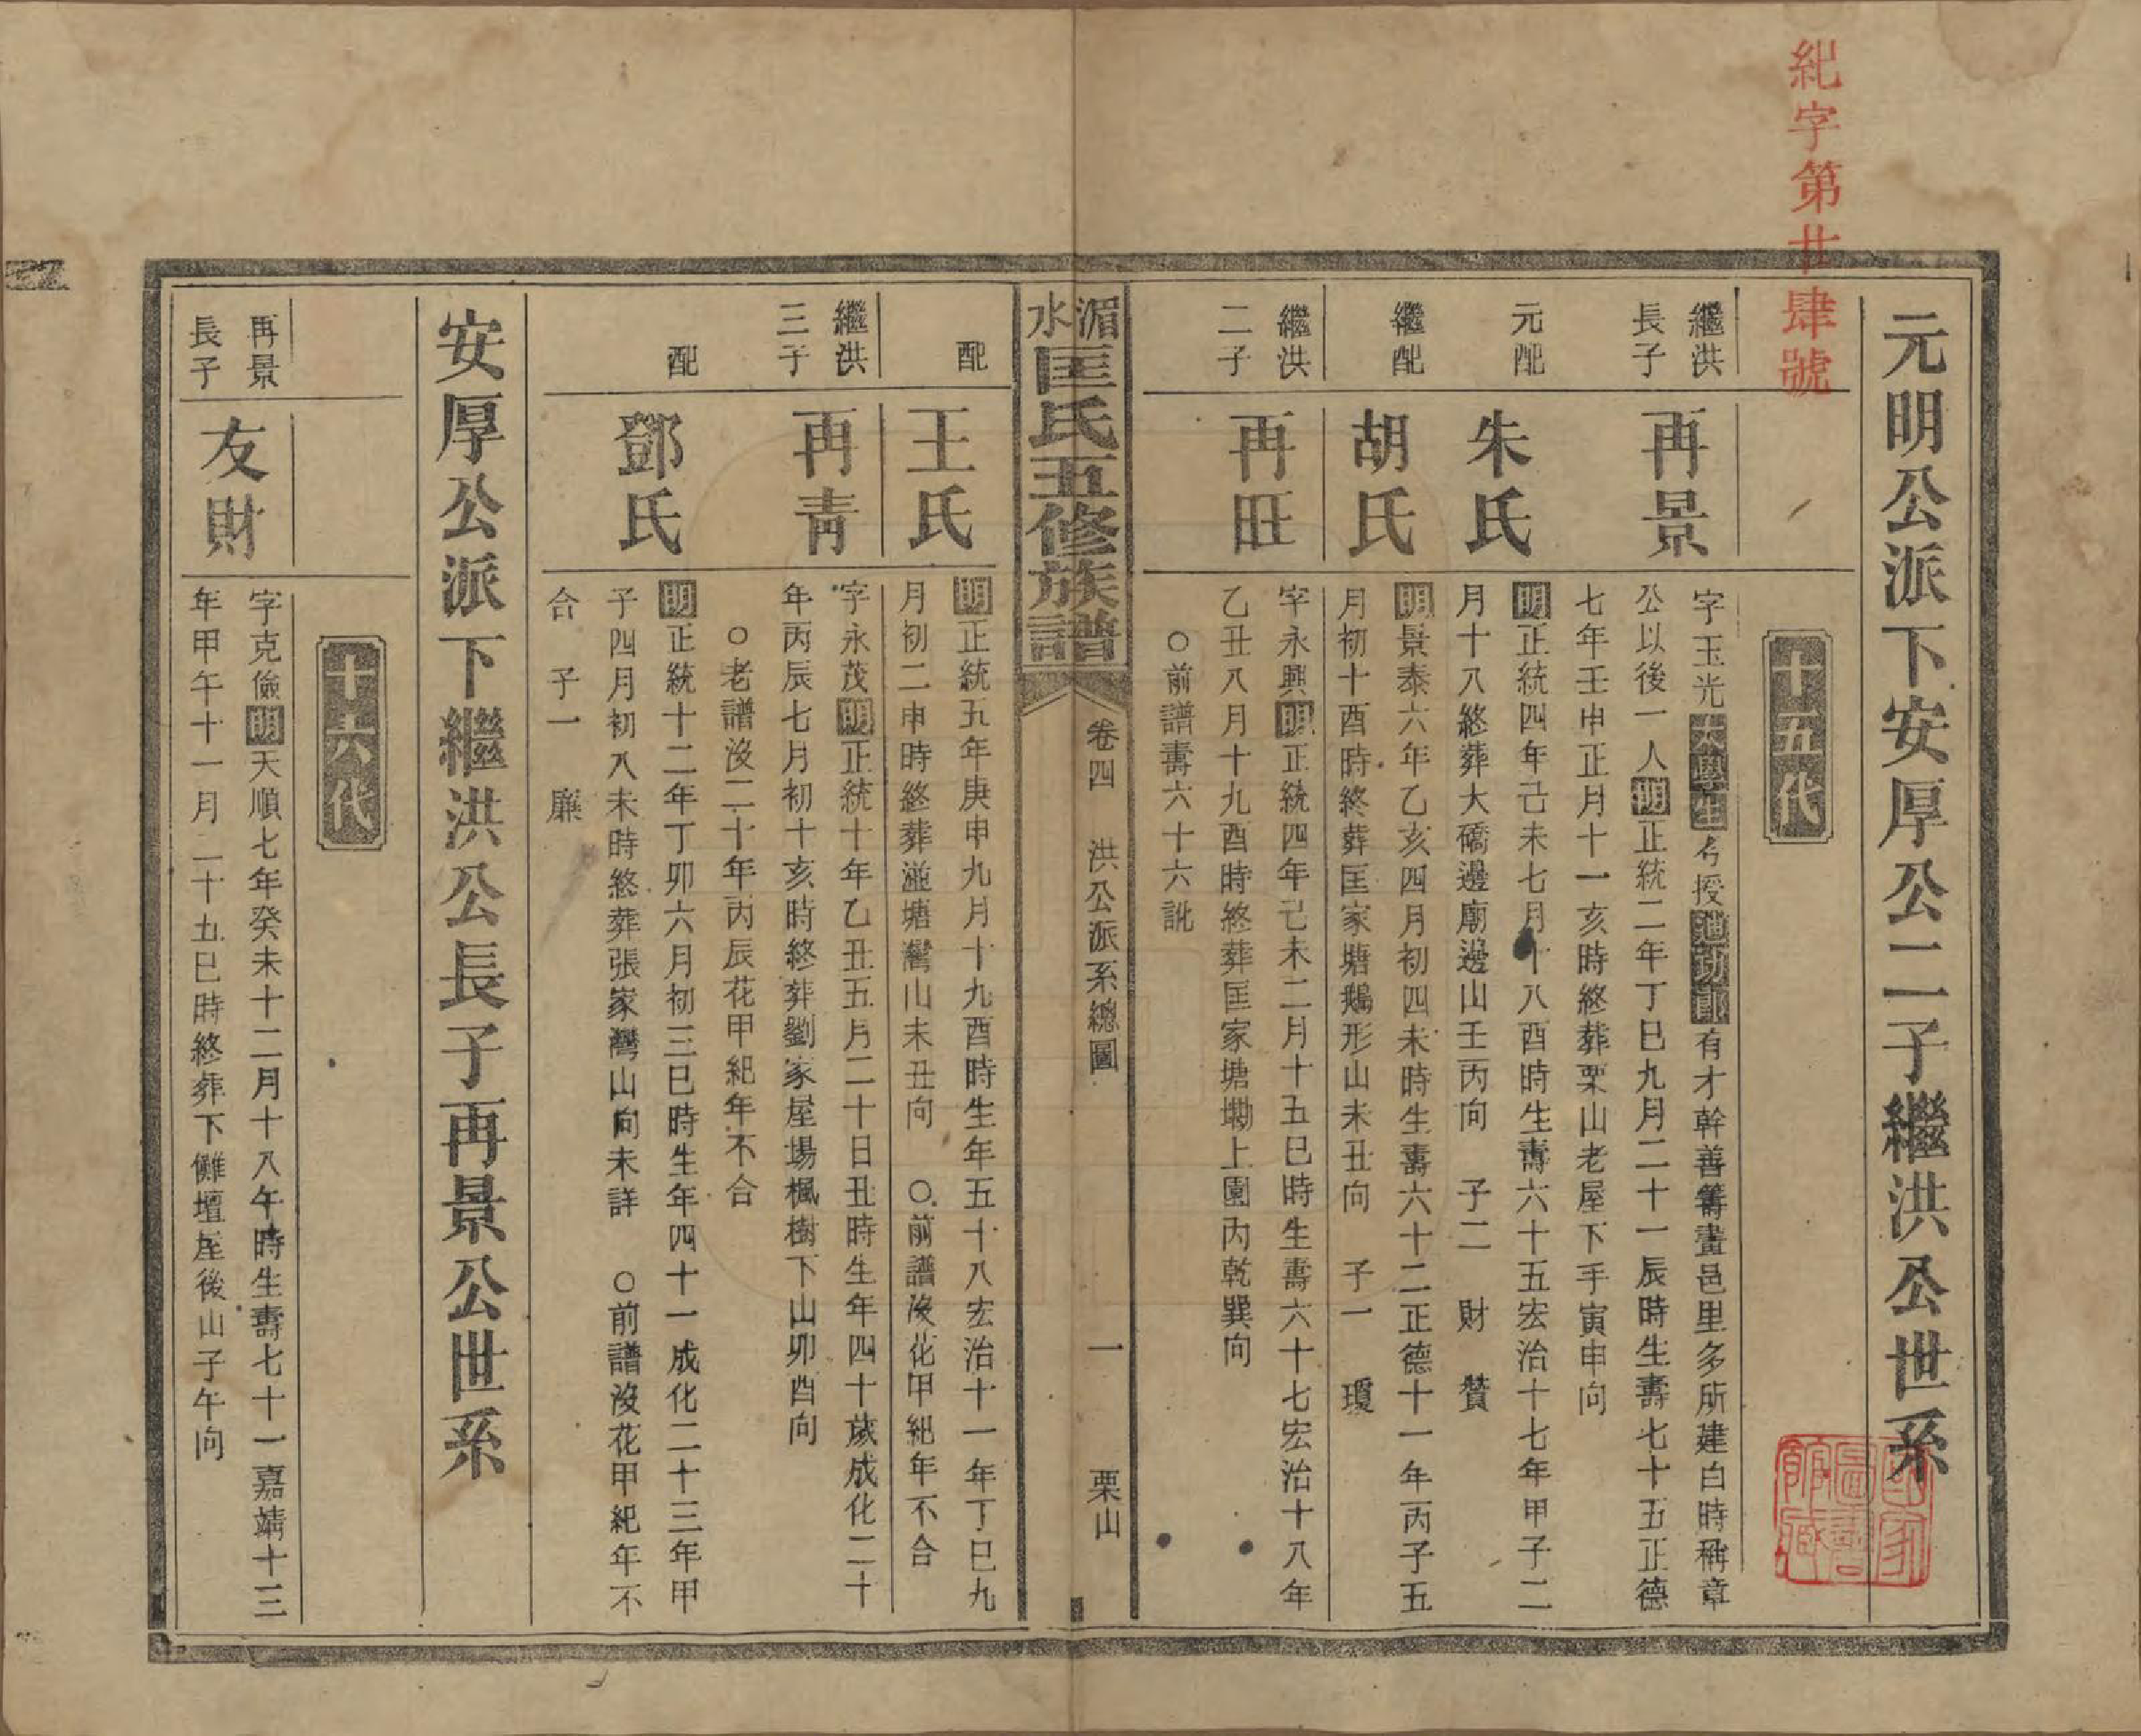 紀字第廿肆號
元明公派下安厚公二子繼洪公世系
十五代
繼洪
長子
再景
字玉光太學生名授迪功郎有才幹善籌畫邑里多所建白時稱章
公以後一人明正統二年丁巳九月二十一辰時生壽七十五正德
七年壬申正月十一亥時終葬栗山老屋下手寅申向
元配
朱氏
明正統四年己未七月十八酉時生壽六十五宏治十七年甲子二
月十八終葬大礄邊廟邊山壬丙向 子二 財 贊
繼配
胡氏
明景泰六年乙亥四月初四未時生壽六十二正德十一年丙子五
月初十酉時終葬匡家塘鵝形山未丑向 子一 瓊
繼洪
二子
再旺
字永興明正統四年己未二月十五巳時生壽六十七宏治十八年
乙丑八月十九酉時終葬匡家塘塝上園內乾巽向
○前譜壽六十六訛
湄水匡氏五修族譜
卷四 洪公派系總圖 一 栗山
配
王氏
明正統五年庚申九月十九酉時生年五十八宏治十一年丁巳九
月初二申時終葬塘灣山未丑向 ○前譜沒花甲紀年不合
繼洪
三子
再青
字永茂明正統十年乙丑五月二十日丑時生年四十歲成化二十
年丙辰七月初十亥時終葬劉家屋場楓樹下山卯酉向
○老譜沒二十年丙辰花甲紀年不合
配
鄧氏
明正統十二年丁卯六月初三巳時生年四十一成化二十三年甲
子四月初八未時終葬張家灣山向未詳 ○前譜沒花甲紀年不
合 子一 廉
安厚公派下繼洪公長子再景公世系
十六代
再景
長子
友財
字克儉明天順七年癸未十二月十八午時生壽七十一嘉靖十三
年甲午十一月二十九巳時終葬下儺壇屋後山子午向